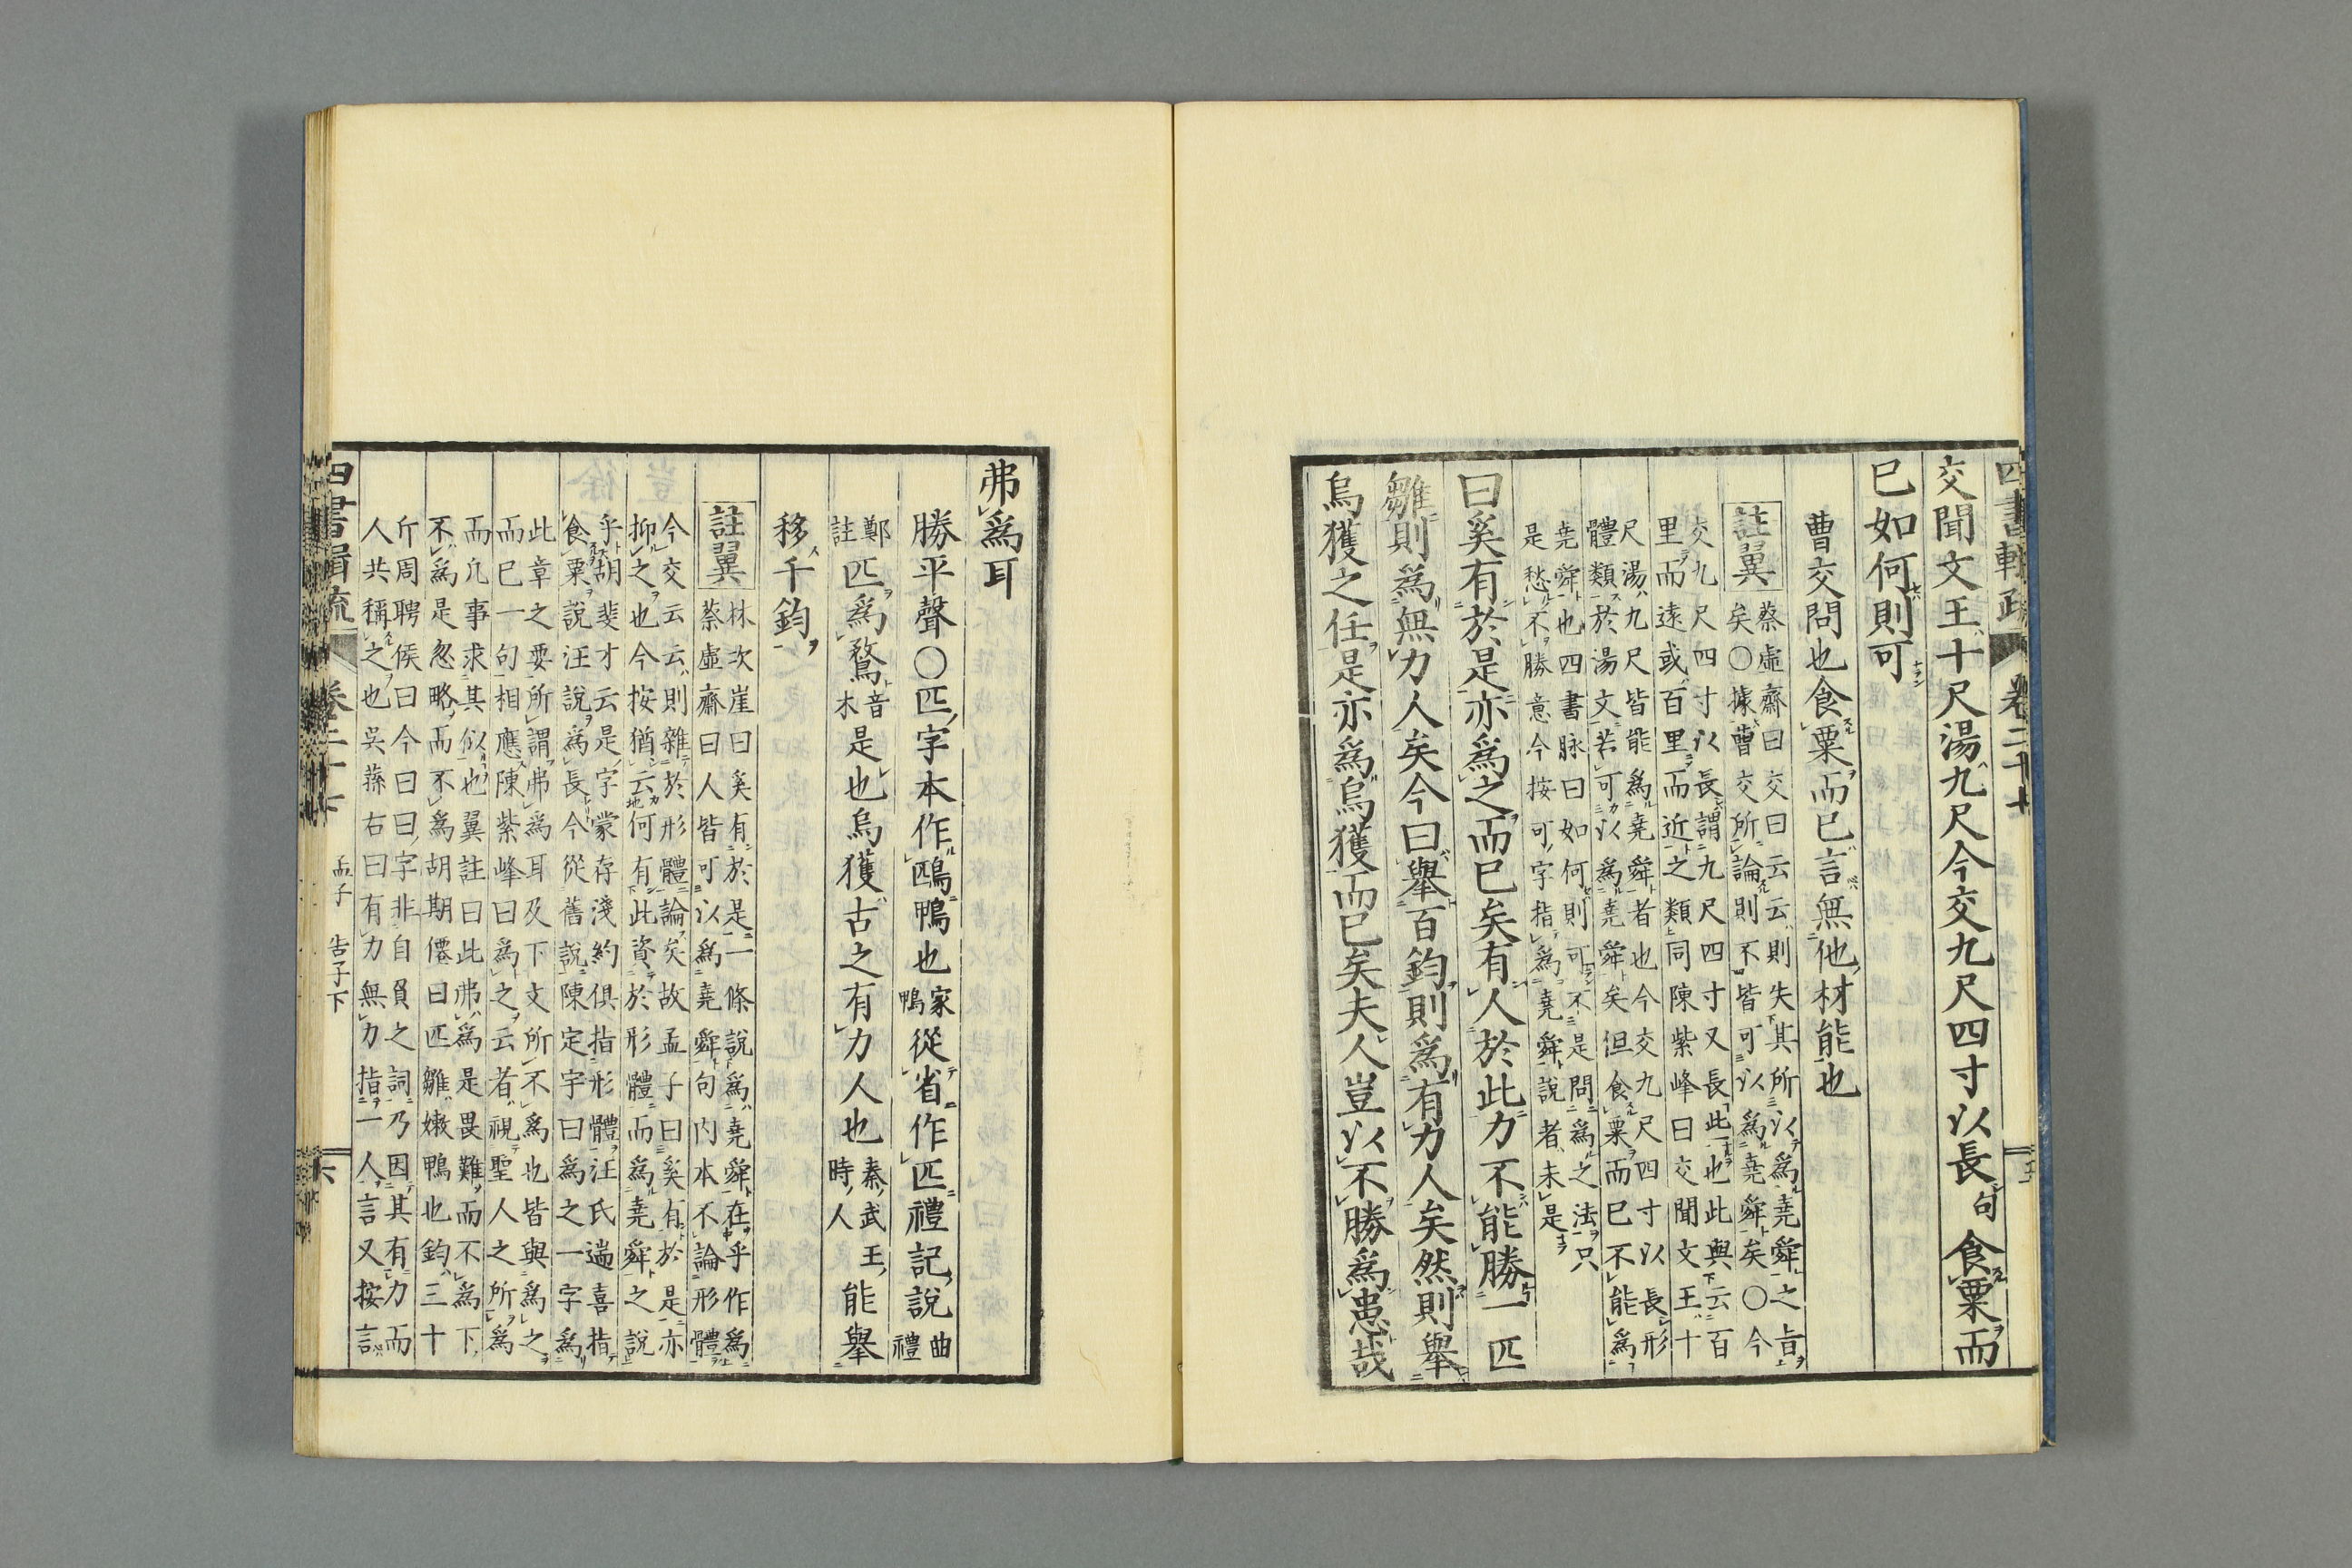 交聞文王十尺湯九尺今交九尺四寸以長句食粟而
已如何則可
曹交問也食粟而已言無他材能也
註翼
蔡虛齋曰交曰云云則失其所以為堯舜之旨
矣〇據曹交所論則不皆可以為堯舜矣〇今
交九尺四寸以長謂九尺四寸又長此一也此與云百
里而遠或百里而近之類同陳紫峰曰交聞文王十
尺湯九尺皆能為堯舜者也今交九尺四寸以長形
體類於湯文若可以為堯舜矣但食粟而已不能為
堯舜也四書脉曰如何則可不是問為之法只
是愁不勝意今按可字指為堯舜說者未是
曰奚有於是亦為之而已矣有人於此力不能勝一匹
雛則為無力人矣今曰舉百鈞則為有力人矣然則舉
烏獲之任是亦為烏獲而已矣夫人豈以不勝為患哉
弗為耳
勝平聲〇匹字本作鴄鴨也家鴨從省作匹禮記說曲禮
鄭註匹為鶩音木是也烏獲古之有力人也秦武王時人能舉
移千鈞
註翼
林次崖曰奚有於是一條說為堯舜在乎作為
蔡虛齋曰人皆可以為堯舜句内本不論形體
今交云云則雜於形體論矣故孟子曰奚有於是亦
抑之也今按猶云何有此資於形體而為堯舜之說
乎胡斐才云是字蒙存淺約俱指形體汪氏遄喜指
食粟說汪說為長今從舊說陳定宇曰為之一字為
此章之要所謂弗為耳及下文所不為也皆與為之
而已一句相應陳紫峰曰為之云者視聖人之所為
而凡事求其似也翼註曰此弗為是畏難而不為下
不為是忽略而不為胡期僊曰匹雛嫩鴨也鈞三十
斤周聘侯曰今曰曰字非自負之詞乃因其有力而
人共稱之也吳蓀右曰有力無力指一人言又按言
四書輯疏
卷二十七
孟子 告子下
六